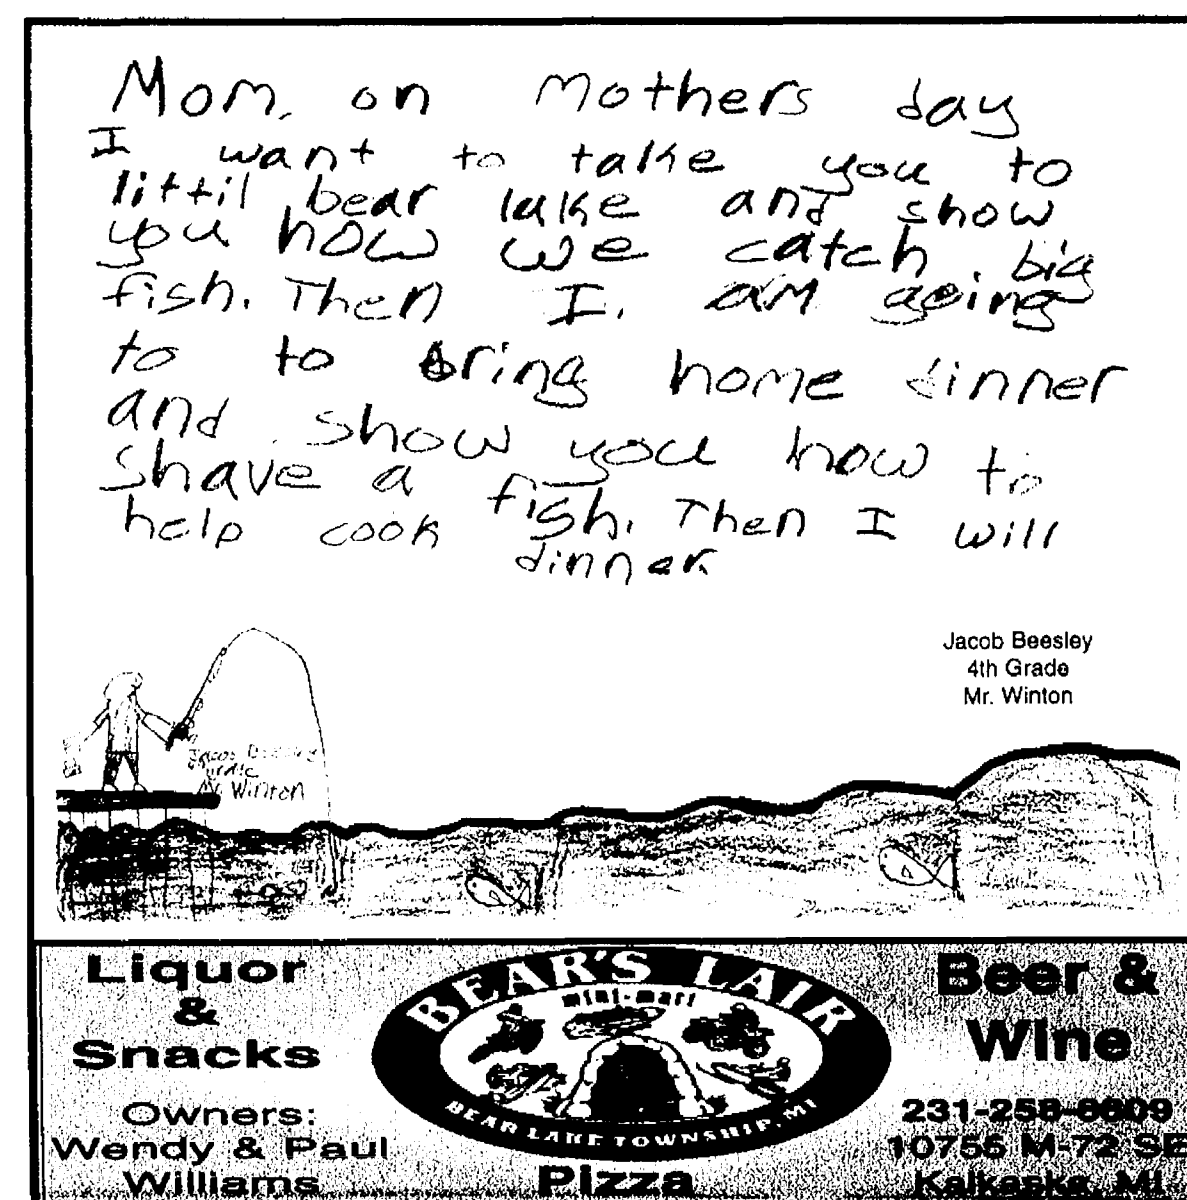 Mom, on mothers day
I want to take you to
littil bear lake and show
you how we catch big
fish. Then I. am going
to to bring home dinner
and show you how to
shave a fish. Then I will
help cook dinner.
Jacob Beesley
4th Grade
Mr. Winton
Winton
Liquor
&
Snacks
Owners:
Wendy & Paul
Williams
BEAR'S LAIR
mini-mart
BEAR LAKE TOWNSHIP, MI
Pizza
Beer &
Wine
10755 M-72 SE
Kalkaska, MI